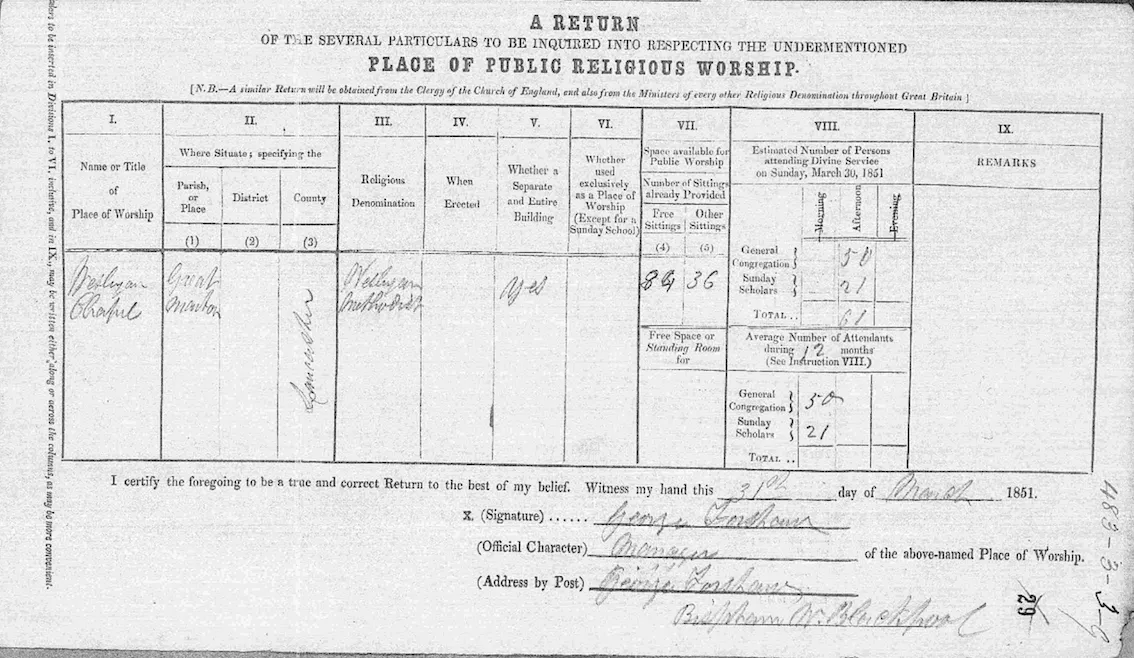 A RETURN
OF THE SEVERAL PARTICULARS TO BE INQUIRED INTO RESPECTING THE UNDERMENTIONED
PLACE OF PUBLIC RELIGIOUS WORSHIP.
[N.B.—A similar Return will be obtained from the Clergy of the Church of England, and also from the Ministers of every other Religious Denomination throughout Great Britain]
to be inserted in Divisions I. to VI. inclusive, and in IX., may be written either along or across the columns, as may be more convenient.
I.
Name or Title
of
Place of Worship
II.
Where Situate; specifying the
Parish,
or
Place
(1)
District
(2)
County
(3)
III.
Religious
Denomination
IV.
When
Erected
V.
Whether a
Separate
and Entire
Building
VI.
Whether
used
exclusively
as a Place of
Worship
(Except for a
Sunday School)
VII.
Space available for
Public Worship
Number of Sittings
already Provided
Free
Sittings
(4)
Other
Sittings
(5)
VIII.
Estimated Number of Persons
attending Divine Service
on Sunday, March 30, 1851
Morning
Afternoon
Evening
IX.
REMARKS
Wesleyan
Chapel
Great
Marton
Lancashire
Wesleyan
Methodist
Yes
84 36
General
Congregation } 50
Sunday
Scholars } 21
TOTAL .. 61
Free Space or
Standing Room
for
Average Number of Attendants
during 12 months
(See Instruction VIII.)
General
Congregation } 50
Sunday
Scholars } 21
TOTAL ..
I certify the foregoing to be a true and correct Return to the best of my belief. Witness my hand this 31st day of March 1851.
X. (Signature) ...... George Forshaw
(Official Character) Manager of the above-named Place of Worship.
(Address by Post) George Forshaw
Bispham Nr. Blackpool
29
483-3-3-9